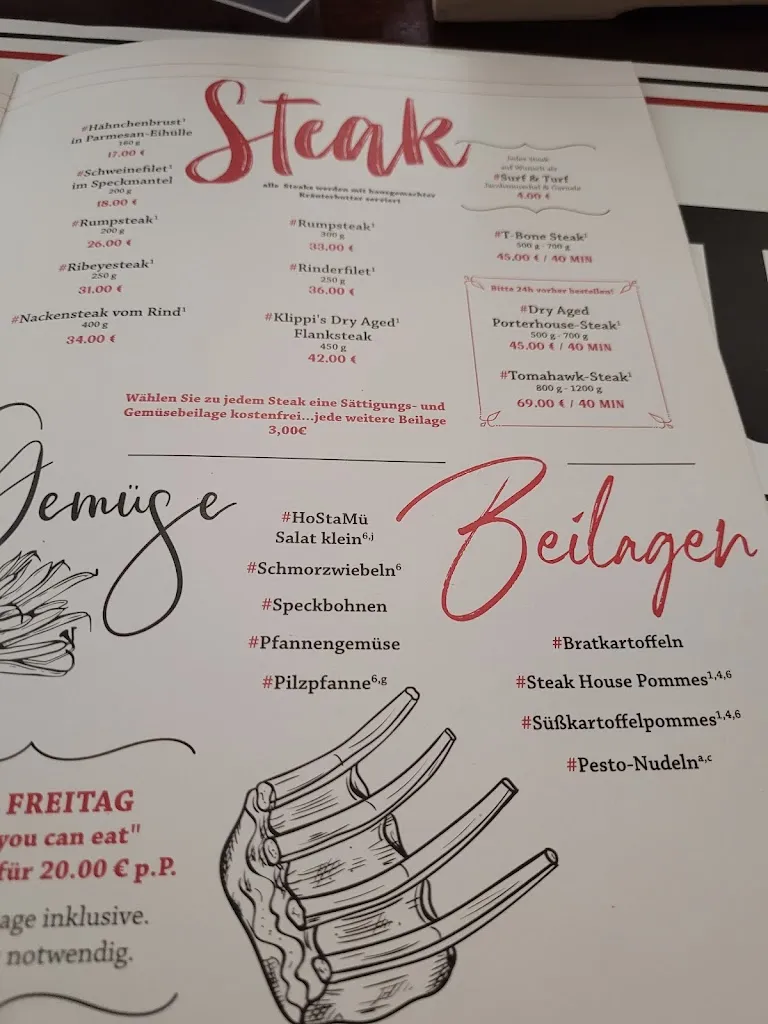 Steak
#Hähnchenbrust¹
in Parmesan-Eihülle
160 g
17.00 €
#Schweinefilet¹
im Speckmantel
200 g
18.00 €
#Rumpsteak¹
200 g
26.00 €
#Ribeyesteak¹
250 g
31.00 €
#Nackensteak vom Rind¹
400 g
34.00 €
alle Steaks werden mit hausgemachter
Kräuterbutter serviert
#Rumpsteak¹
300 g
33.00 €
#Rinderfilet¹
250 g
36.00 €
#Klippi's Dry Aged¹
Flanksteak
450 g
42.00 €
Jedes Steak
auf Wunsch als
#Surf & Turf
Jacobsmuschel & Garnele
4.00 €
#T-Bone Steak¹
500 g - 700 g
45.00 € / 40 MIN
Bitte 24h vorher bestellen!
#Dry Aged
Porterhouse-Steak¹
500 g - 700 g
45.00 € / 40 MIN
#Tomahawk-Steak¹
800 g - 1200 g
69.00 € / 40 MIN
Wählen Sie zu jedem Steak eine Sättigungs- und
Gemüsebeilage kostenfrei...jede weitere Beilage
3,00€
Gemüse
#HoStaMü
Salat klein⁶,ʲ
#Schmorzwiebeln⁶
#Speckbohnen
#Pfannengemüse
#Pilzpfanne⁶,ᵍ
Beilagen
#Bratkartoffeln
#Steak House Pommes¹,⁴,⁶
#Süßkartoffelpommes¹,⁴,⁶
#Pesto-Nudelnᵃ,ᶜ
FREITAG
you can eat"
für 20.00 € p.P.
age inklusive.
notwendig.